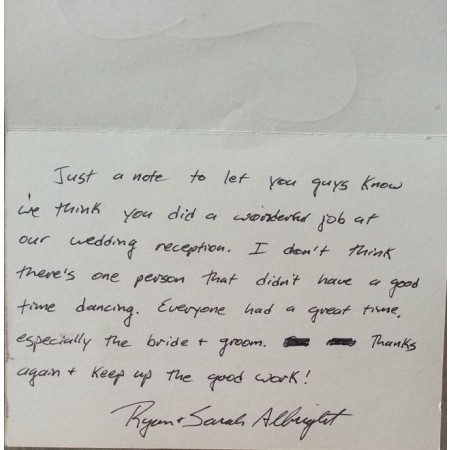 Just a note to let you guys know
we think you did a wonderful job at
our wedding reception. I don't think
there's one person that didn't have a good
time dancing. Everyone had a great time,
especially the bride + groom. Thanks
again + keep up the good work!
Ryan + Sarah Albright